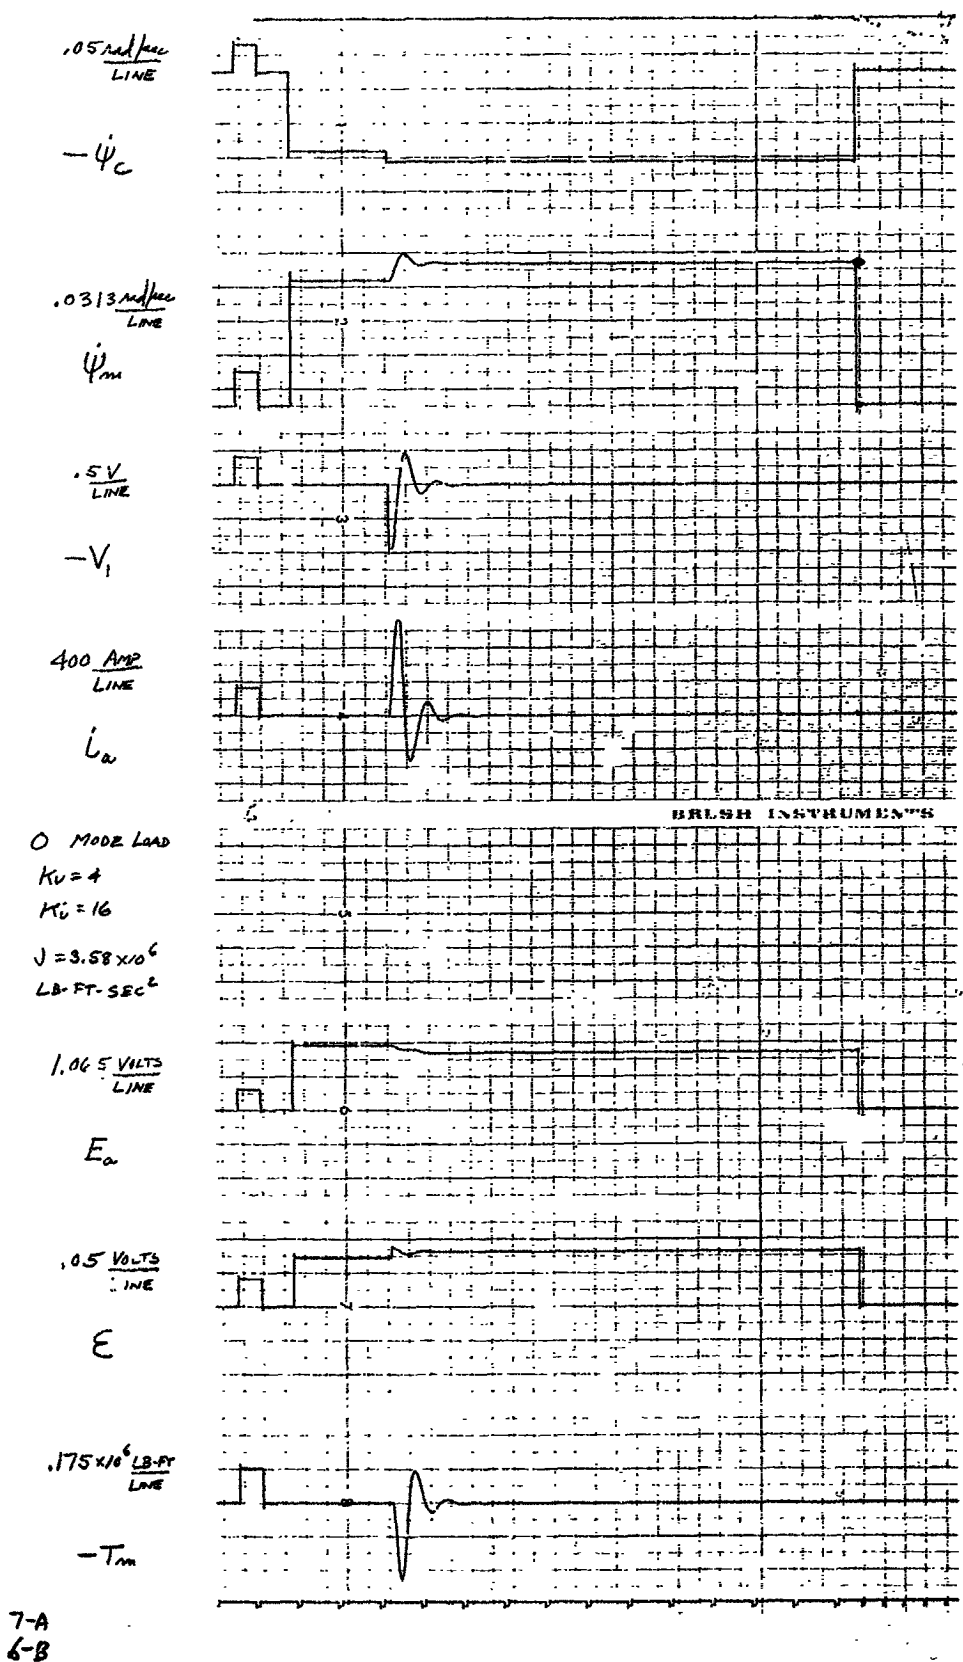 .05 rad/sec
LINE
-ψ̇c
.0313 rad/sec
LINE
ψ̇m
2
.5 V
LINE
3
-V1
400 AMP
LINE
4
ia
BRUSH INSTRUMENTS
O MODE LOAD
Kv = 4
Ki = 16
5
J = 3.58 x 10^6
LB-FT-SEC^2
1.065 VOLTS
LINE
6
Ea
.05 VOLTS
LINE
7
ε
.175 x 10^6 LB-FT
LINE
8
-Tm
7-A
6-B